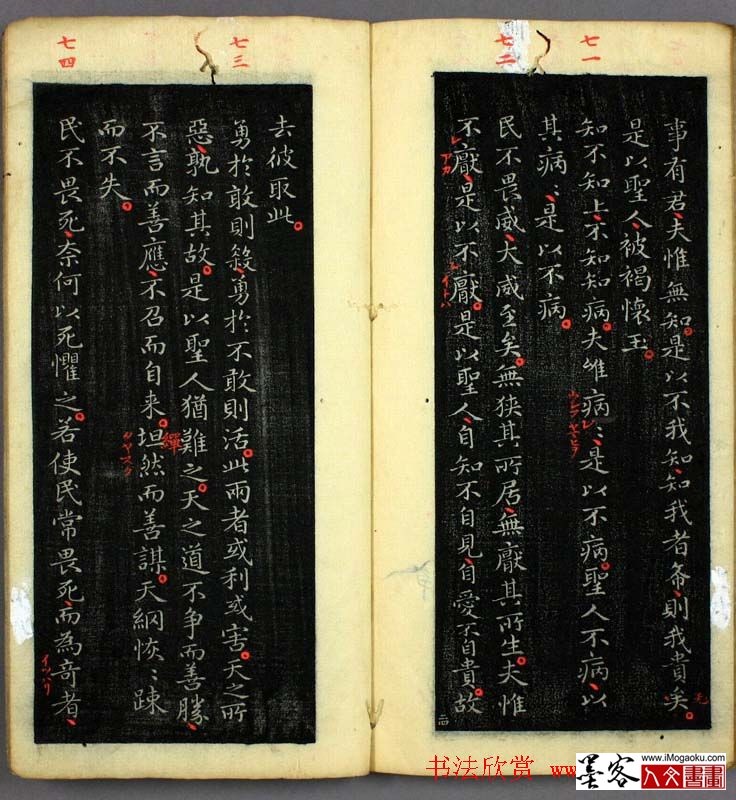 七一
七二
事有君夫惟無知是以不我知知我者希則我貴矣
是以聖人被褐懷玉
知不知上不知知病夫唯病〻是以不病聖人不病以
其病〻是以不病
民不畏威大威至矣無狹其所居無厭其所生夫惟
不厭是以不厭是以聖人自知不自見自愛不自貴故
アカ
イトハ
七三
七四
去彼取此
勇於敢則殺勇於不敢則活此兩者或利或害天之所
惡孰知其故是以聖人猶難之天之道不争而善勝
不言而善應不召而自来坦然而善謀天網恢〻踈
繟
而不失
民不畏死奈何以死懼之若使民常畏死而為奇者
イツハリ
书法欣赏 www
墨客
www.iMogaoku.com
人文書畫